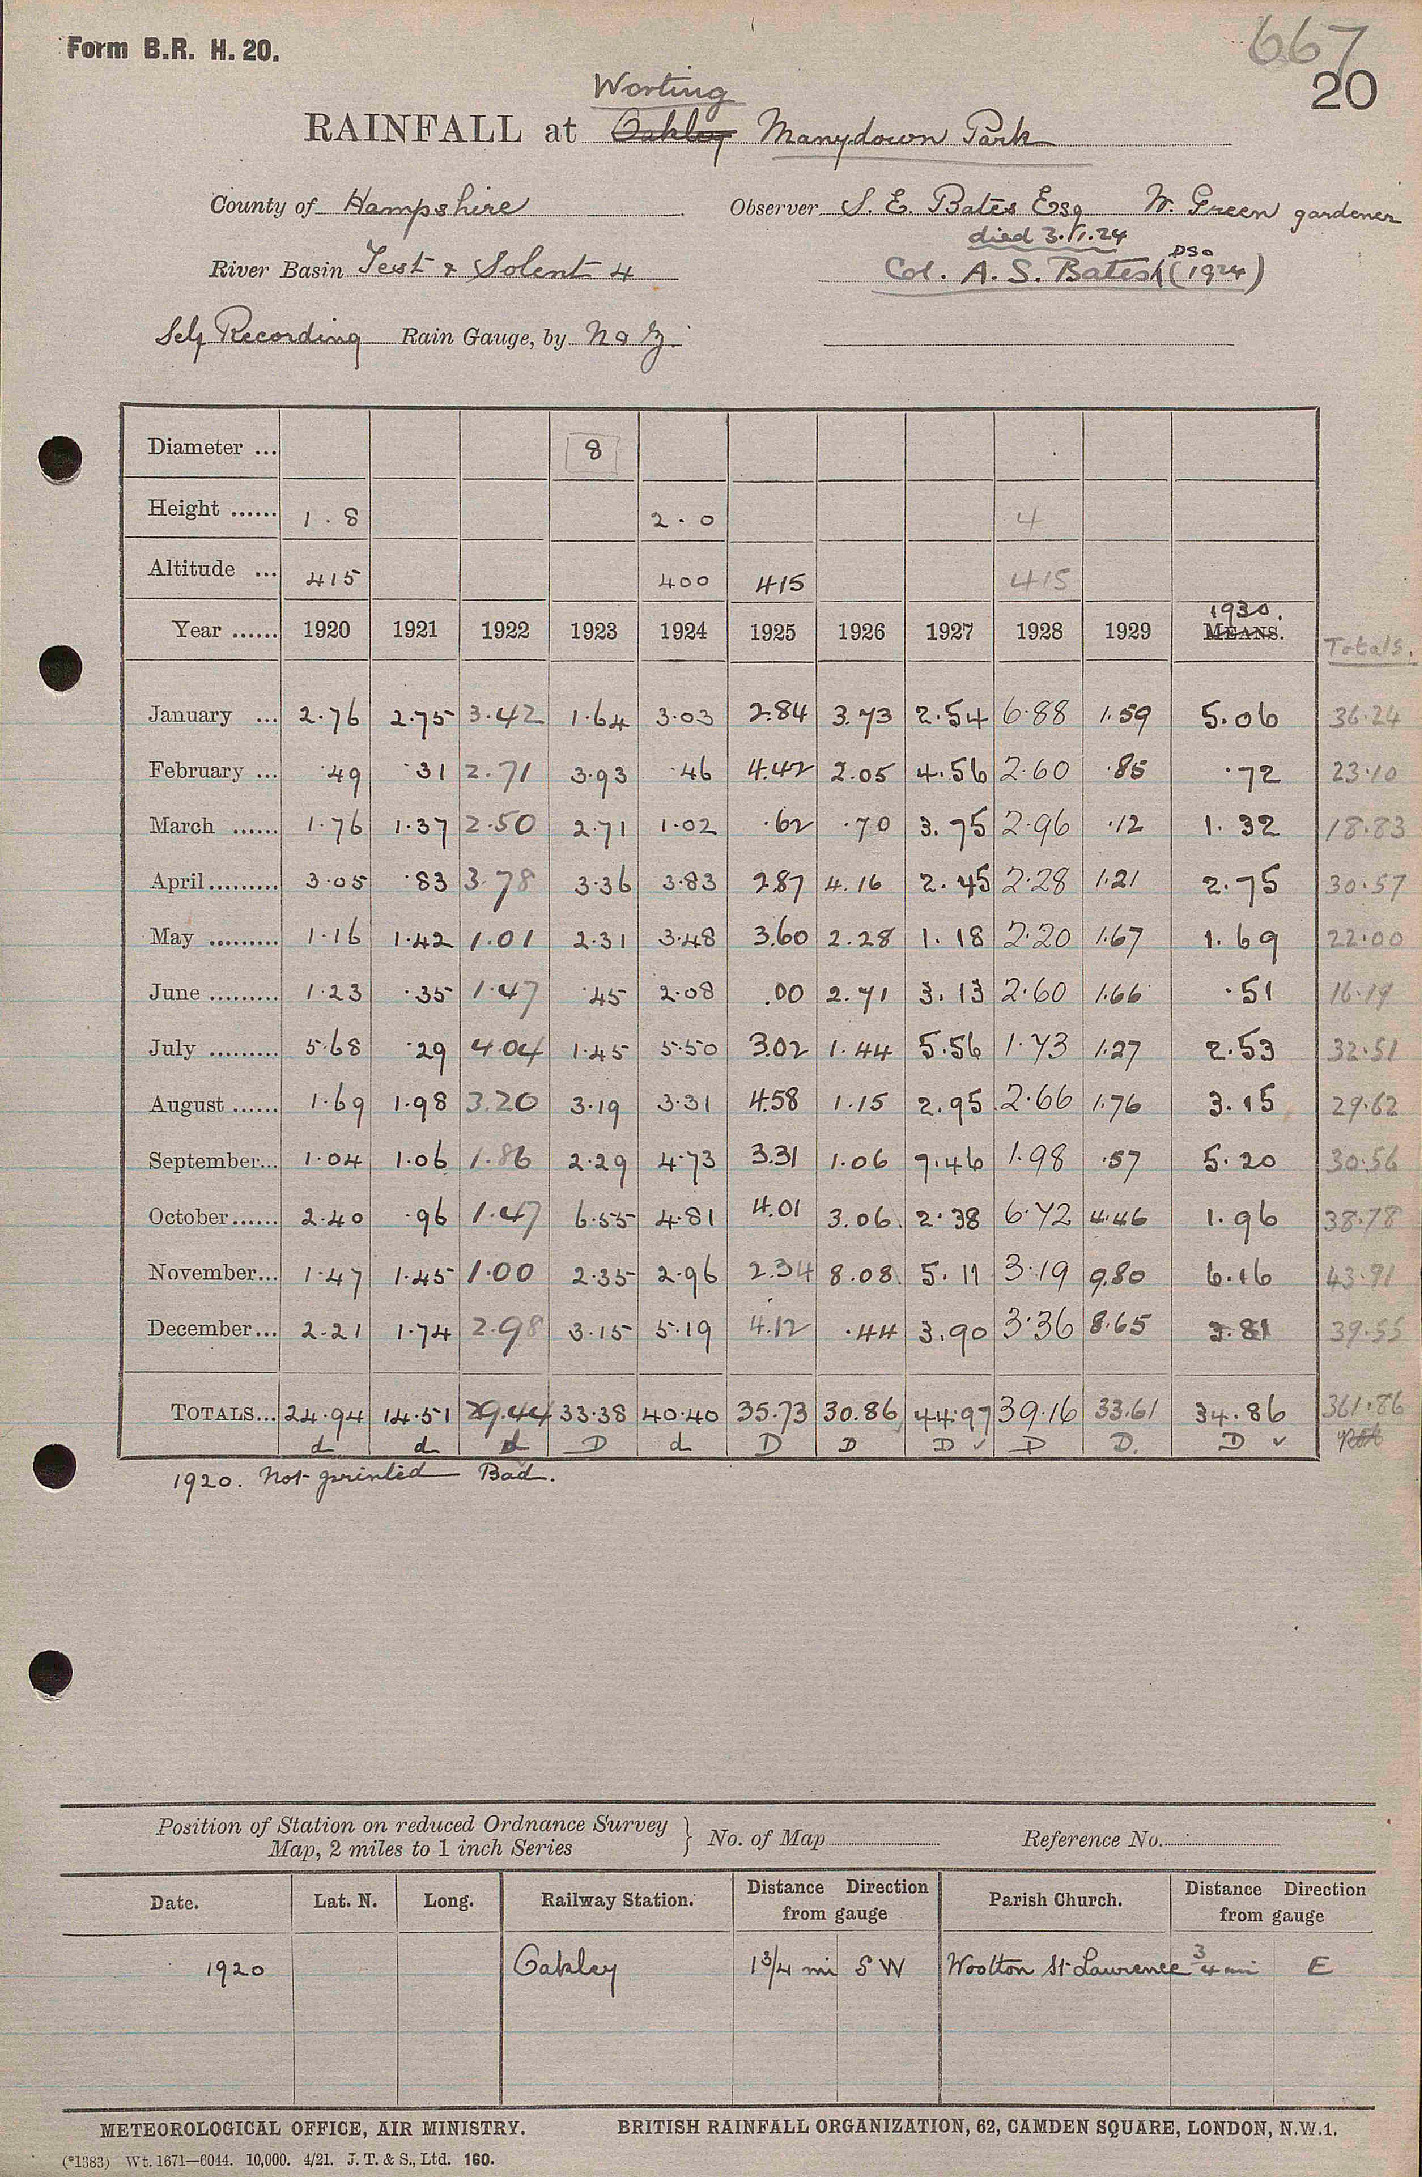 Form B.R. H. 20.
667
20
Worting
RAINFALL at Oakley Manydown Park
County of Hampshire Observer S. E. Bates Esq W. Green gardener
died 3.11.24
River Basin Test & Solent 4 Col. A. S. Bates (DSO (1924)
Self Recording Rain Gauge, by N & Z.
Diameter ... 8
Height ...... 1.8 2.0 4
Altitude ... 415 400 415 415
1930.
Year ...... 1920 1921 1922 1923 1924 1925 1926 1927 1928 1929 MEANS. Totals.
January ... 2.76 2.75 3.42 1.64 3.03 2.84 3.73 2.54 6.88 1.59 5.06 36.24
February ... .49 .31 2.71 3.93 .46 4.42 2.05 4.56 2.60 .85 .72 23.10
March ...... 1.76 1.37 2.50 2.71 1.02 .62 .70 3.75 2.96 .12 1.32 18.83
April......... 3.05 .83 3.78 3.36 3.83 2.87 4.16 2.45 2.28 1.21 2.75 30.57
May ......... 1.16 1.42 1.01 2.31 3.48 3.60 2.28 1.18 2.20 1.67 1.69 22.00
June ......... 1.23 .35 1.47 .45 2.08 .00 2.71 3.13 2.60 1.66 .51 16.19
July ......... 5.68 .29 4.04 1.45 5.50 3.02 1.44 5.56 1.73 1.27 2.53 32.51
August ...... 1.69 1.98 3.20 3.19 3.31 4.58 1.15 2.95 2.66 1.76 3.15 29.62
September... 1.04 1.06 1.86 2.29 4.73 3.31 1.06 7.46 1.98 .57 5.20 30.56
October...... 2.40 .96 1.47 6.55 4.81 4.01 3.06 2.38 6.72 4.46 1.96 38.78
November... 1.47 1.45 1.00 2.35 2.96 2.34 8.08 5.11 3.19 9.80 6.16 43.91
December... 2.21 1.74 2.98 3.15 5.19 4.12 .44 3.90 3.36 8.65 3.81 39.55
TOTALS... 24.94 14.51 29.44 33.38 40.40 35.73 30.86 44.97 39.16 33.61 34.86 361.86
d d d D d D D D ✓ D D. D ✓
1920. Not printed Bad.
Position of Station on reduced Ordnance Survey
Map, 2 miles to 1 inch Series } No. of Map Reference No.
Date. Lat. N. Long. Railway Station. Distance Direction from gauge Parish Church. Distance Direction from gauge
1920 Oakley 1 3/4 mi S W Wootton St Lawrence 3/4 mi E
METEOROLOGICAL OFFICE, AIR MINISTRY. BRITISH RAINFALL ORGANIZATION, 62, CAMDEN SQUARE, LONDON, N.W.1.
(*1383) Wt. 1671—6044. 10,000. 4/21. J. T. & S., Ltd. 160.